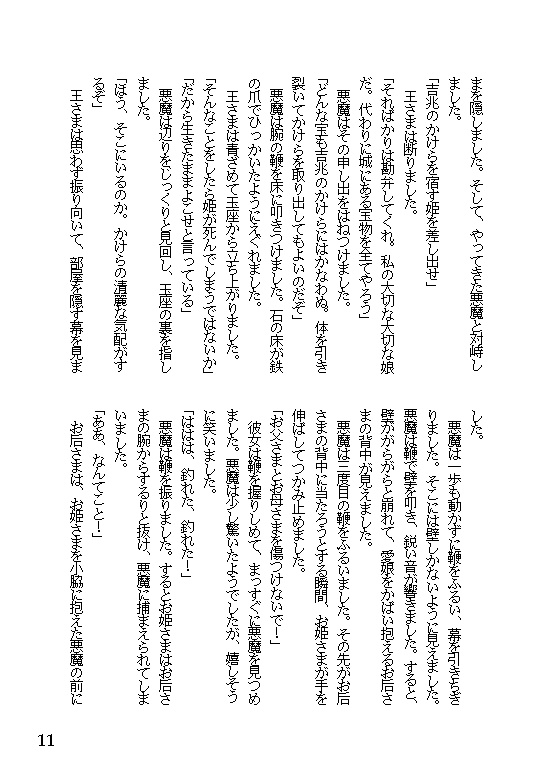 まを隠しました。そして、やってきた悪魔と対峙し
ました。
「吉兆のかけらを宿す姫を差し出せ」
王さまは断りました。
「そればかりは勘弁してくれ。私の大切な大切な娘
だ。代わりに城にある宝物を全てやろう」
悪魔はその申し出をはねつけました。
「どんな宝も吉兆のかけらにはかなわぬ。体を引き
裂いてかけらを取り出してもよいのだぞ」
悪魔は腕の鞭を床に叩きつけました。石の床が鉄
の爪でひっかいたようにえぐれました。
王さまは青ざめて玉座から立ち上がりました。
「そんなことをしたら姫が死んでしまうではないか」
「だから生きたままよこせと言っている」
悪魔は辺りをじっくりと見回し、玉座の裏を指し
ました。
「ほう、そこにいるのか。かけらの清麗な気配がす
るぞ」
王さまは思わず振り向いて、部屋を隠す幕を見ま
した。
悪魔は一歩も動かずに鞭をふるい、幕を引きちぎ
りました。そこには壁しかないように見えました。
悪魔は鞭で壁を叩き、鋭い音が響きました。すると、
壁ががらがらと崩れて、愛娘をかばい抱えるお后さ
まの背中が見えました。
悪魔は三度目の鞭をふるいました。その先がお后
さまの背中に当たろうとする瞬間、お姫さまが手を
伸ばしてつかみ止めました。
「お父さまとお母さまを傷つけないで！」
彼女は鞭を握りしめて、まっすぐに悪魔を見つめ
ました。悪魔は少し驚いたようでしたが、嬉しそう
に笑いました。
「ははは、釣れた、釣れた！」
悪魔は鞭を振りました。するとお姫さまはお后さ
まの腕からするりと抜け、悪魔に捕まえられてしま
いました。
「ああ、なんてこと！」
お后さまは、お姫さまを小脇に抱えた悪魔の前に
11